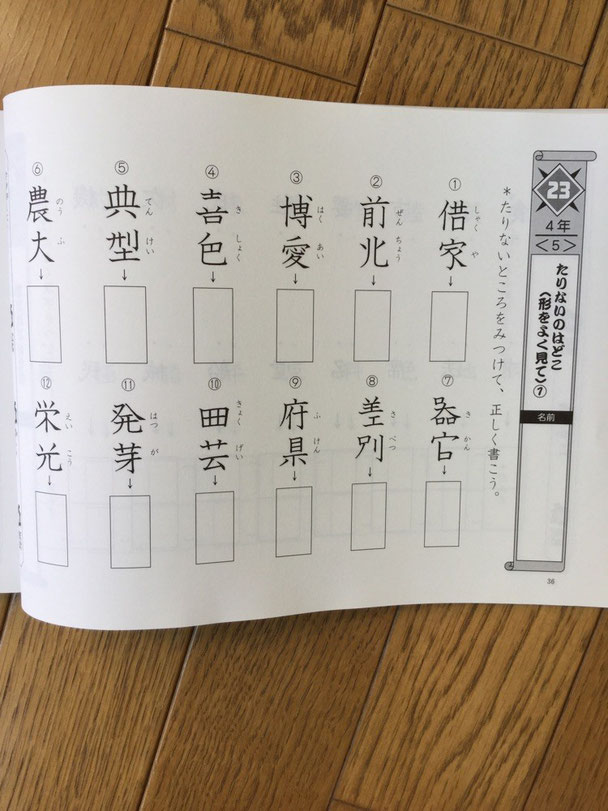 23
4年
<5>
たりないのはどこ
(形をよく見て)①
名前
*たりないところをみつけて、正しく書こう。
① 借家 しゃくや ↓
② 前兆 ぜんちょう ↓
③ 博愛 はくあい ↓
④ 喜色 きしょく ↓
⑤ 典型 てんけい ↓
⑥ 農大 のうふ ↓
⑦ 器官 きかん ↓
⑧ 差別 さべつ ↓
⑨ 府県 ふけん ↓
⑩ 田芸 きょくげい ↓
⑪ 発芽 はつが ↓
⑫ 栄光 えいこう ↓
36